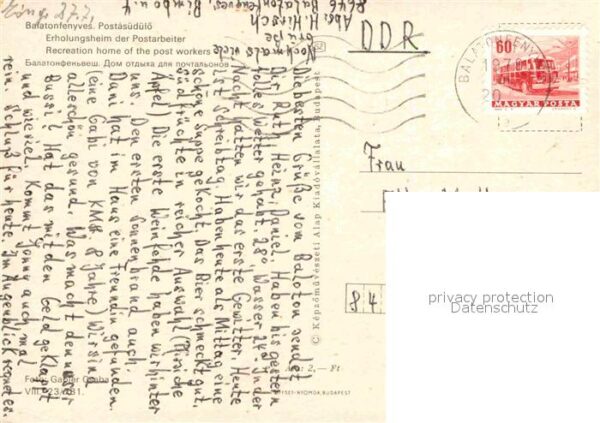 Eing. 27.7.
Balatonfenyves. Postásüdülő
Erholungsheim der Postarbeiter
Recreation home of the post workers
Балатонфеньвеш. Дом отдыха для почтальонов
Abs. H. Hirsch
8646 Balatonfenyves,
Nochmals viele
Grüße
DDR
BALATONFENYVES
60
MAGYAR POSTA
Frau
84
Die besten Grüße vom Balaton sendet
Dir Ruth, Heinz, Daniel. Haben bis gestern
tolles Wetter gehabt. 28° Wasser 24°. In der
Nacht hatten wir das erste Gewitter. Heute
ist Schreibtag. Haben heute als Mittag eine
schöne Suppe gekocht. Das Bier schmeckt gut.
Südfrüchte in reicher Auswahl (Pfirsiche
Äpfel) Die erste Weinfehde haben wir hinter
uns. Den ersten Sonnenbrand auch.
Dani hat im Haus eine Freundin gefunden.
(eine Gabi von KMS. 8 Jahre) Wir sind
alle schön gesund. Was macht denn unser
Bussi? Hat das mit den Geld geklappt
und wieviel. Kommt Jonny auch mal
rein. Schluß für heute. Im Augenblick regnet es.
© Képzőművészeti Alap Kiadóvállalata, Budapest
2,– Ft
OFFSET-NYOMDA, BUDAPEST
Foto: Gábler Csaba
privacy protection
Datenschutz